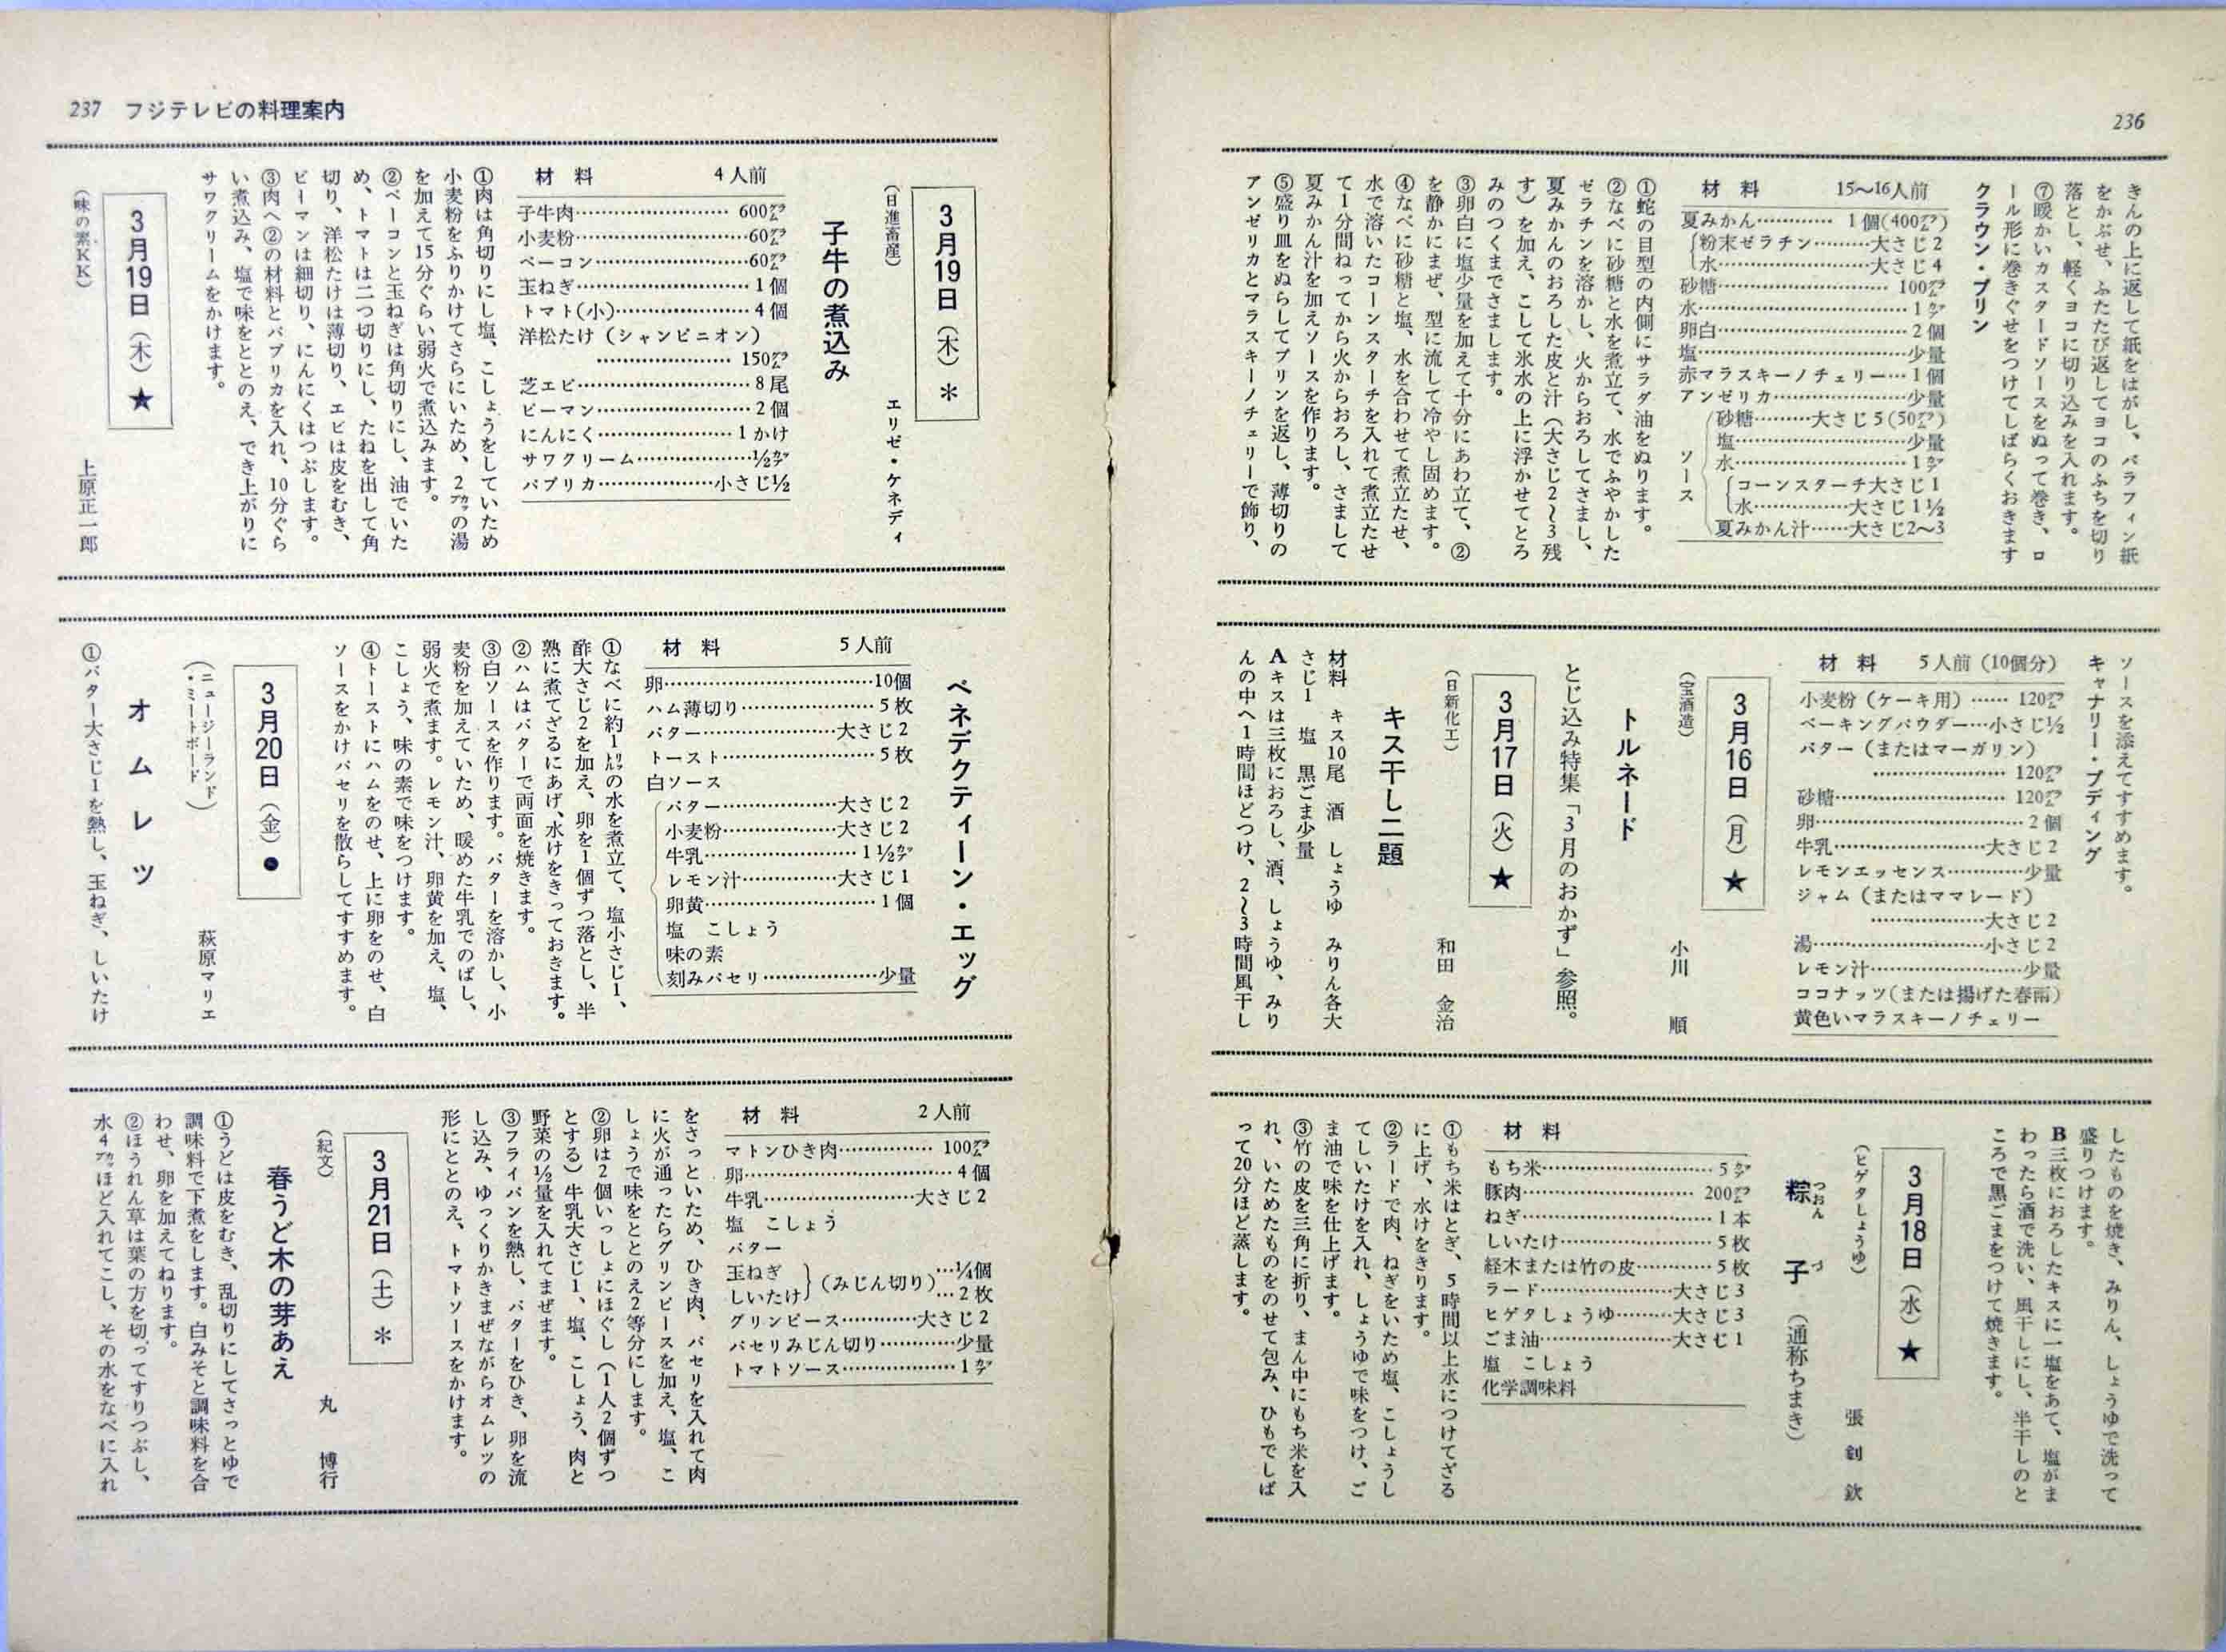 236
きんの上に返して紙をはがし、パラフィン紙
をかぶせ、ふたたび返してヨコのふちを切り
落とし、軽くヨコに切り込みを入れます。
⑦暖かいカスタードソースをぬって巻き、ロ
ール形に巻きぐせをつけてしばらくおきます
クラウン・プリン
材料 15〜16人前
夏みかん………… 1個(400グラム)
粉末ゼラチン………大さじ2
水……………………大さじ4
砂糖…………………… 100グラム
水……………………………1カップ
卵白…………………………2個
塩……………………………少量
赤マラスキーノチェリー…1個
アンゼリカ…………………少量
ソース
砂糖………大さじ5(50グラム)
塩…………………………少量
水…………………………1カップ
コーンスターチ大さじ1
水……………大さじ1½
夏みかん汁……大さじ2〜3
①蛇の目型の内側にサラダ油をぬります。
②なべに砂糖と水を煮立て、水でふやかした
ゼラチンを溶かし、火からおろしてさまし、
夏みかんのおろした皮と汁（大さじ2〜3残
す）を加え、こして氷水の上に浮かせてとろ
みのつくまでさまします。
③卵白に塩少量を加えて十分にあわ立て、②
を静かにまぜ、型に流して冷やし固めます。
④なべに砂糖と塩、水を合わせて煮立たせ、
水で溶いたコーンスターチを入れて煮立たせ
て1分間ねってから火からおろし、さまして
夏みかん汁を加えソースを作ります。
⑤盛り皿をぬらしてプリンを返し、薄切りの
アンゼリカとマラスキーノチェリーで飾り、
ソースを添えてすすめます。
キャナリー・プディング
材料 5人前（10個分）
小麦粉（ケーキ用）…… 120グラム
ベーキングパウダー…小さじ½
バター（またはマーガリン）
………………… 120グラム
砂糖…………………… 120グラム
卵……………………………2個
牛乳…………………大さじ2
レモンエッセンス…………少量
ジャム（またはママレード）
………………大さじ2
湯……………………小さじ2
レモン汁……………………少量
ココナッツ(または揚げた春雨)
黄色いマラスキーノチェリー
3月16日（月）★
（宝酒造） 小川 順
トルネード
とじ込み特集「3月のおかず」参照。
3月17日（火）★
（日新化工） 和田 金治
キス干し二題
材料 キス10尾 酒 しょうゆ みりん各大
さじ1 塩 黒ごま少量
Aキスは三枚におろし、酒、しょうゆ、みり
んの中へ1時間ほどつけ、2〜3時間風干し
したものを焼き、みりん、しょうゆで洗って
盛りつけます。
B三枚におろしたキスに一塩をあて、塩がま
わったら酒で洗い、風干しにし、半干しのと
ころで黒ごまをつけて焼きます。
3月18日（水）★
（ヒゲタしょうゆ） 張 釗 欽
粽子（通称ちまき）
つおん づ
材料
もち米………………………5カップ
豚肉…………………… 200グラム
ねぎ…………………………1本
しいたけ……………………5枚
経木または竹の皮…………5枚
ラード…………………大さじ3
ヒゲタしょうゆ………大さじ3
ごま油…………………大さじ1
塩 こしょう
化学調味料
①もち米はとぎ、5時間以上水につけてざる
に上げ、水けをきります。
②ラードで肉、ねぎをいため塩、こしょうし
てしいたけを入れ、しょうゆで味をつけ、ご
ま油で味を仕上げます。
③竹の皮を三角に折り、まん中にもち米を入
れ、いためたものをのせて包み、ひもでしば
って20分ほど蒸します。
237 フジテレビの料理案内
3月19日（木）＊
（日進畜産） エリゼ・ケネディ
子牛の煮込み
材料 4人前
子牛肉…………………… 600グラム
小麦粉………………………60グラム
ベーコン……………………60グラム
玉ねぎ………………………1個
トマト(小)…………………4個
洋松たけ（シャンピニオン）
………………… 150グラム
芝エビ………………………8尾
ピーマン……………………2個
にんにく…………………1かけ
サワクリーム………………½カップ
パプリカ………………小さじ½
①肉は角切りにし塩、こしょうをしていため
小麦粉をふりかけてさらにいため、2カップの湯
を加えて15分ぐらい弱火で煮込みます。
②ベーコンと玉ねぎは角切りにし、油でいた
め、トマトは二つ切りにし、たねを出して角
切り、洋松たけは薄切り、エビは皮をむき、
ピーマンは細切り、にんにくはつぶします。
③肉へ②の材料とパプリカを入れ、10分ぐら
い煮込み、塩で味をととのえ、でき上がりに
サワクリームをかけます。
3月19日（木）★
（味の素KK） 上原正一郎
ベネデクティーン・エッグ
材料 5人前
卵……………………………10個
ハム薄切り…………………5枚
バター…………………大さじ2
トースト……………………5枚
白ソース
バター………………大さじ2
小麦粉………………大さじ2
牛乳……………………1½カップ
レモン汁……………大さじ1
卵黄………………………1個
塩 こしょう
味の素
刻みパセリ………………少量
①なべに約1リットルの水を煮立て、塩小さじ1、
酢大さじ2を加え、卵を1個ずつ落とし、半
熟に煮てざるにあげ、水けをきっておきます。
②ハムはバターで両面を焼きます。
③白ソースを作ります。バターを溶かし、小
麦粉を加えていため、暖めた牛乳でのばし、
弱火で煮ます。レモン汁、卵黄を加え、塩、
こしょう、味の素で味をつけます。
④トーストにハムをのせ、上に卵をのせ、白
ソースをかけパセリを散らしてすすめます。
3月20日（金）●
（ニュージーランド・ミートボード） 萩原マリエ
オムレツ
①バター大さじ1を熱し、玉ねぎ、しいたけ
材料 2人前
マトンひき肉…………… 100グラム
卵……………………………4個
牛乳…………………大さじ2
塩 こしょう
バター
玉ねぎ
しいたけ
（みじん切り）
…¼個
…2枚
グリンピース…………大さじ2
パセリみじん切り…………少量
トマトソース………………1カップ
をさっといため、ひき肉、パセリを入れて肉
に火が通ったらグリンピースを加え、塩、こ
しょうで味をととのえ2等分にします。
②卵は2個いっしょにほぐし（1人2個ずつ
とする）牛乳大さじ1、塩、こしょう、肉と
野菜の½量を入れてまぜます。
③フライパンを熱し、バターをひき、卵を流
し込み、ゆっくりかきまぜながらオムレツの
形にととのえ、トマトソースをかけます。
3月21日（土）＊
（紀文） 丸 博行
春うど木の芽あえ
①うどは皮をむき、乱切りにしてさっとゆで
調味料で下煮をします。白みそと調味料を合
わせ、卵を加えてねります。
②ほうれん草は葉の方を切ってすりつぶし、
水4カップほど入れてこし、その水をなべに入れ